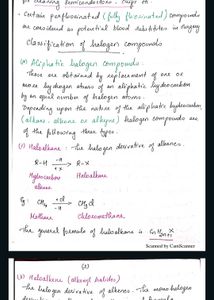 for cleaning semiconductors.
• Certain perfluorinated (fully fluorinated) compounds
are considered as potential blood substitutes in surgery
Classification of halogen compounds
(A) Aliphatic halogen compounds:
These are obtained by replacement of one or
more hydrogen atoms of an aliphatic hydrocarbon
by an equal number of halogen atoms.
Depending upon the nature of the aliphatic hydrocarbon
(alkane, alkene or alkyne) halogen compounds are
of the following three types.
(1) Haloalkane: The halogen derivative of alkanes.
R-H -H +X → R-X
Hydrocarbon Haloalkane
alkane
Eg: CH4 +Cl -H → CH3Cl
Methane Chloromethane
The general formula of haloalkane is CnH2n+1X
Scanned by CamScanner
(2)
Haloalkene (alkenyl halides)
The halogen derivative of alkenes. The mono halogen